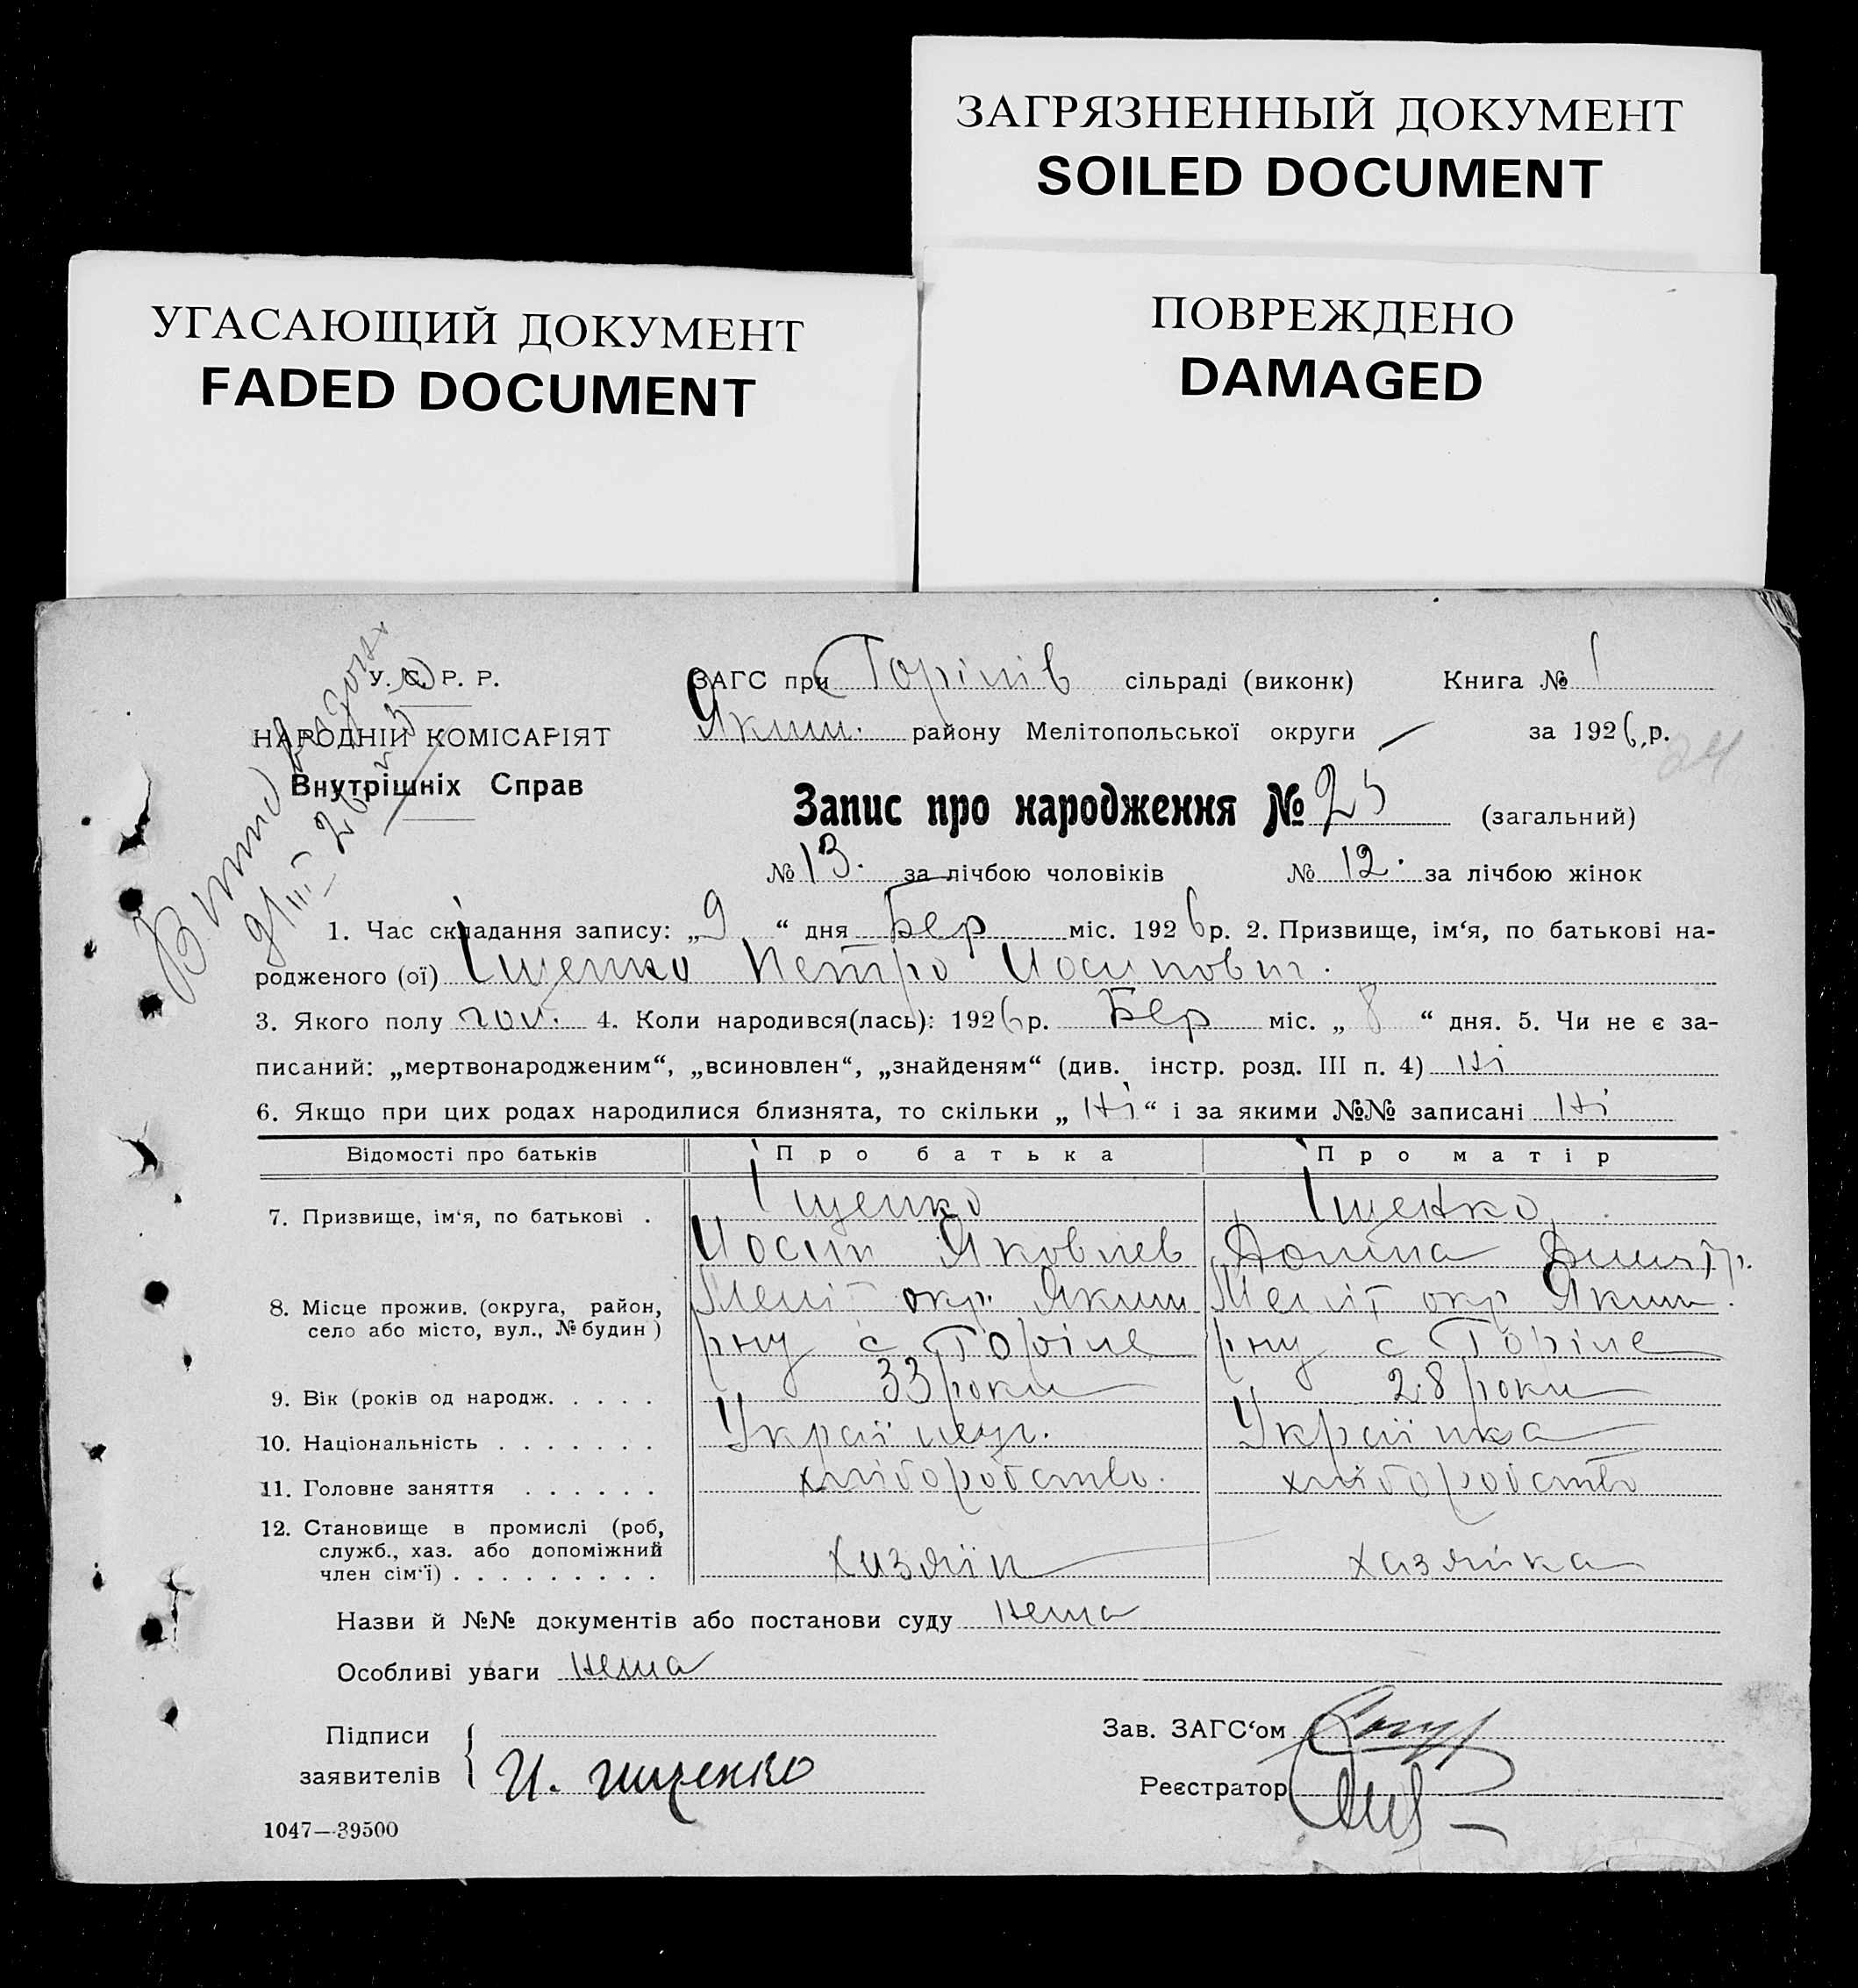 ЗАГРЯЗНЕННЫЙ ДОКУМЕНТ
SOILED DOCUMENT
УГАСАЮЩИЙ ДОКУМЕНТ
FADED DOCUMENT
ПОВРЕЖДЕНО
DAMAGED
У. С. Р. Р.
НАРОДНІЙ КОМІСАРІЯТ
Внутрішніх Справ
ЗАГС при Горілів сільраді (виконк) Книга № 1
Яким. району Мелітопольської округи за 1926 р.
24
Запис про народження № 25 (загальний)
№ 13. за лічбою чоловіків № 12. за лічбою жінок
1. Час складання запису: „9“ дня Бер міс. 1926 р. 2. Призвище, ім‘я, по батькові на-
родженого (ої) Іщенко Петро Иосипович.
3. Якого полу чол. 4. Коли народився(лась): 1926 р. Бер міс. „8“ дня. 5. Чи не є за-
писаний: „мертвонародженим“, „всиновлен“, „знайденям“ (див. інстр. розд. III п. 4) Ні
6. Якщо при цих родах народилися близнята, то скільки „Ні“ і за якими №№ записані Ні
Відомості про батьків Про батька Про матір
7. Призвище, ім‘я, по батькові . Іщенко Іщенко
Иосип Яковлев
8. Місце прожив. (округа, район, село або місто, вул., № будин) Меліт окр. Яким Меліт окр Яким.
рну с Горіле рну с Горіле
9. Вік (років од народж. . . . . 33 роки 28 роки
10. Національність . . . . . . . Українец. Українка
11. Головне заняття . . . . . . хліборобство. хліборобство
12. Становище в промислі (роб,
служб., хаз. або допоміжний
член сім‘ї) . . . . . . . . . хазяїн хазяйка
Назви й №№ документів або постанови суду Нема
Особливі уваги Нема
Підписи
заявителів И. Ищенко
Зав. ЗАГС‘ом
Реєстратор
1047—39500